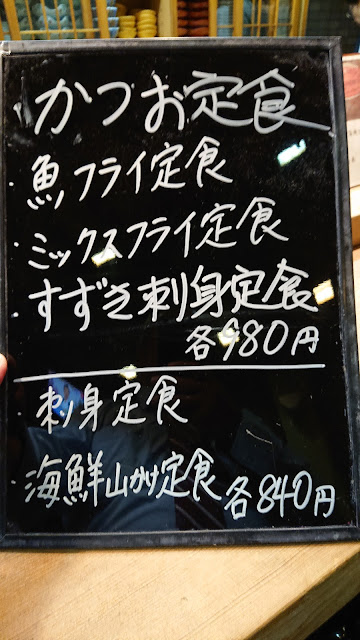 ・かつお定食
・魚フライ定食
・ミックスフライ定食
・すずき刺身定食
各980円
・刺身定食
・海鮮山かけ定食 各840円